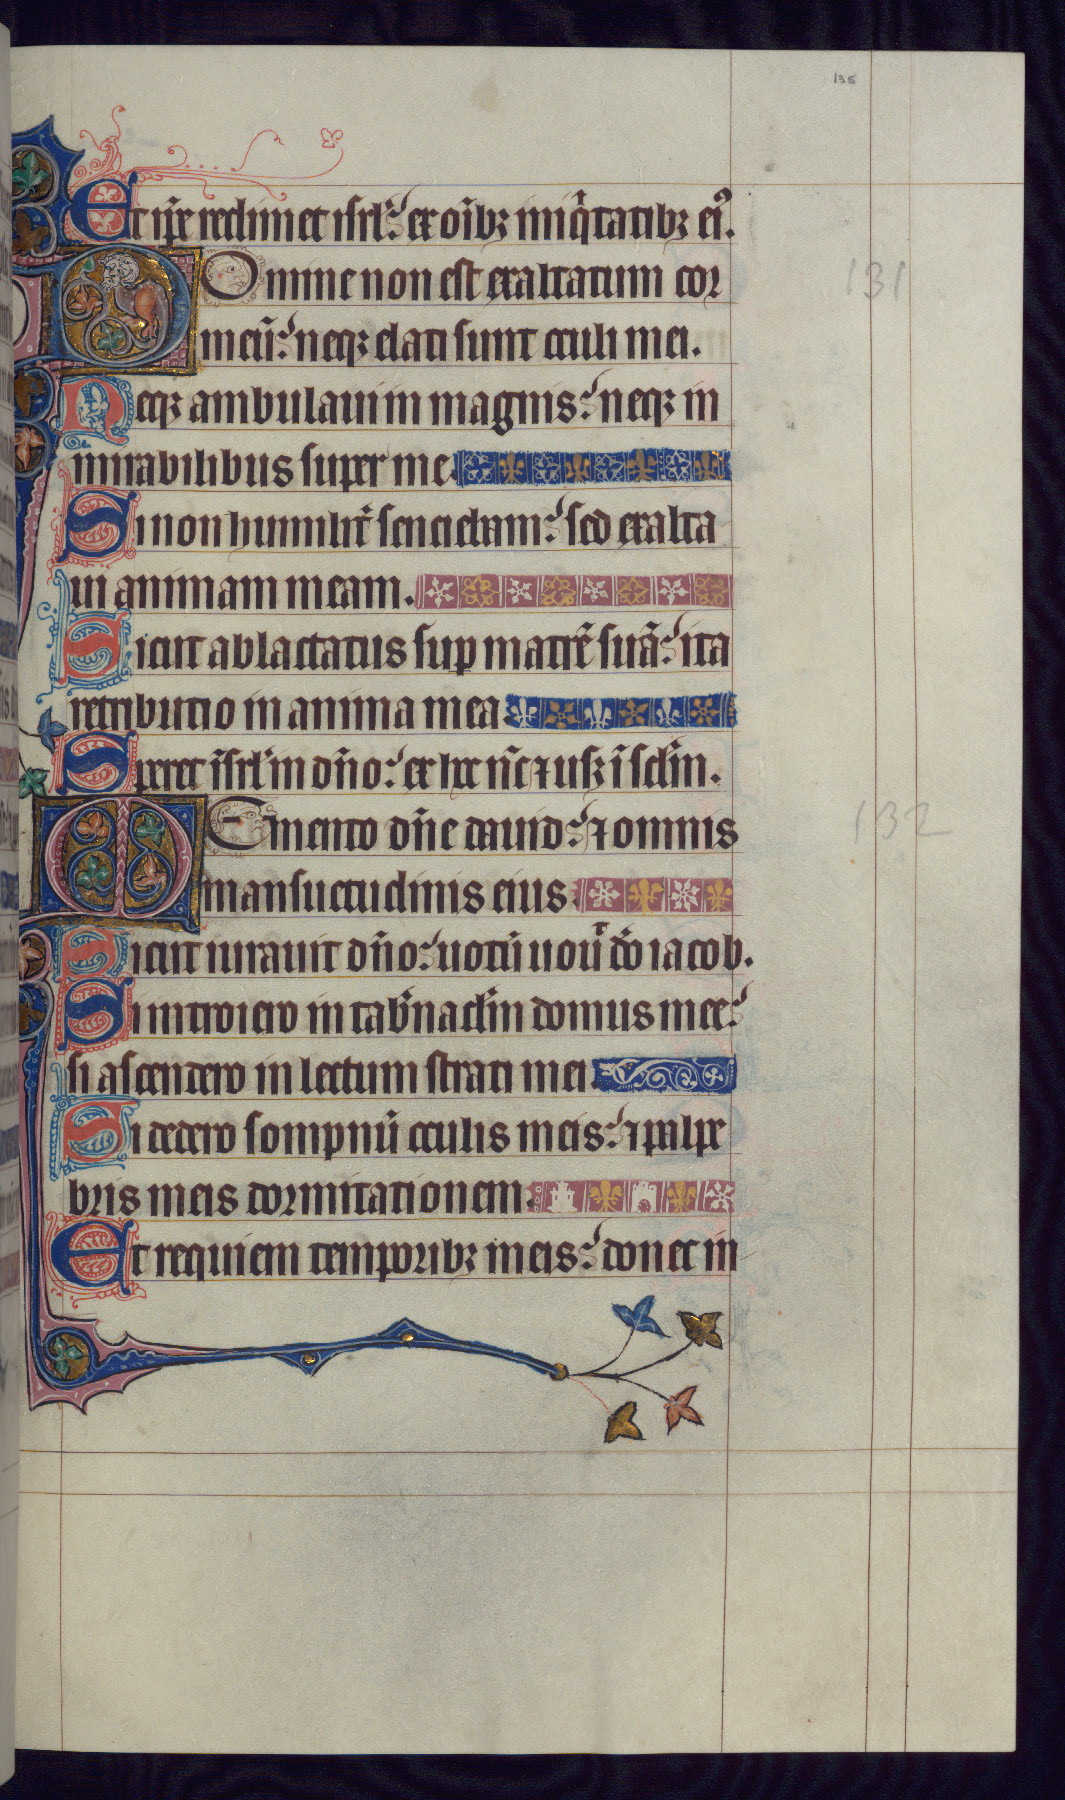 135
Et ip̄e redimet isrl̄: ex oībꝫ iniq̇tatibꝫ ei᷒.
Domine non est exaltatum cor
131
meū: neqꝫ elati sunt oculi mei.
Neqꝫ ambulaui in magnis: neqꝫ in
mirabilibus super me.
Si non humilit̄ senciebam: sed exalta
ui animam meam.
Sicut ablactatus sup matrē suā: ita
retributio in anima mea.
Speret isrl̄ in dn̄o: ex hoc nc̄ ⁊ usqꝫ ī sclm̄.
Memento dn̄e dauid: ⁊ omnis
132
mansuetudinis eius.
Sicut iurauit dn̄o: uotū uouı̄t dō iacob.
Si introiero in tab̄naclm̄ domus mee:
si ascendero in lectum strati mei.
Si dedero sompnū oculis meis: ⁊ palpe
bris meis dormitationem.
Et requiem temporibꝫ meis: donec in